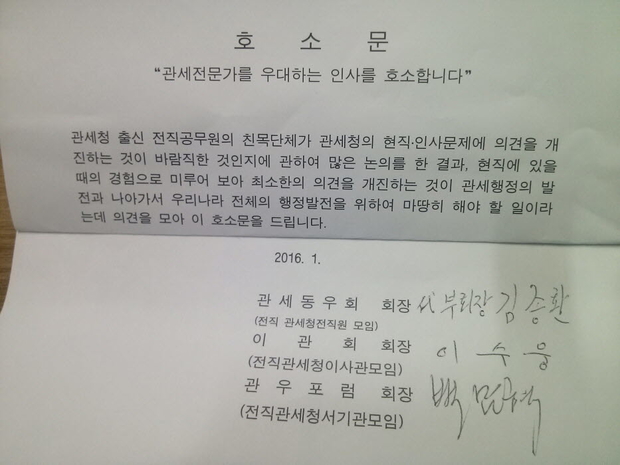 호 소 문
“관세전문가를 우대하는 인사를 호소합니다”
관세청 출신 전직공무원의 친목단체가 관세청의 현직·인사문제에 의견을 개
진하는 것이 바람직한 것인지에 관하여 많은 논의를 한 결과, 현직에 있을
때의 경험으로 미루어 보아 최소한의 의견을 개진하는 것이 관세행정의 발
전과 나아가서 우리나라 전체의 행정발전을 위하여 마땅히 해야 할 일이라
는데 의견을 모아 이 호소문을 드립니다.
2016. 1.
관 세 동 우 회 회 장 代 부회장 김 종 환
(전직 관세청전직원 모임)
이 관 회 회 장 이 수 웅
(전직관세청이사관모임)
관 우 포 럼 회 장
(전직관세청서기관모임)